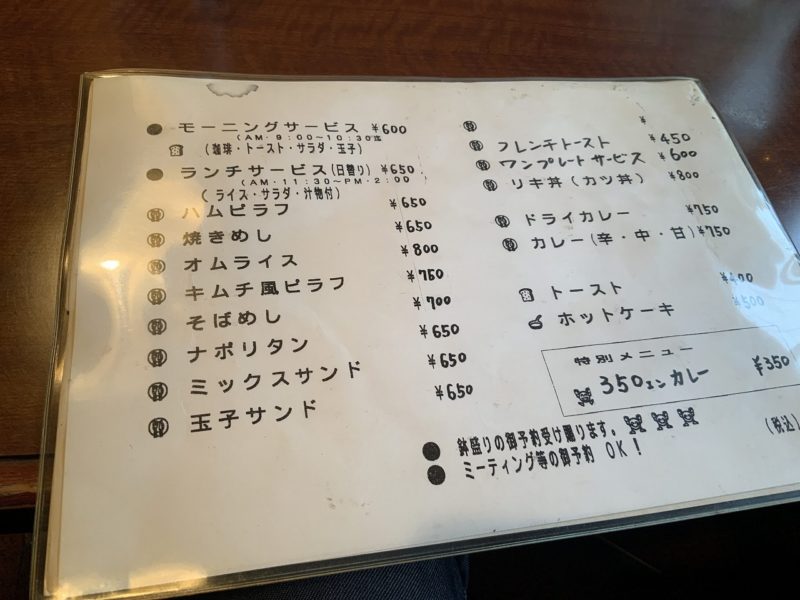 ● モーニングサービス ¥600
(AM・9:00〜10:30迄
(珈琲・トースト・サラダ・玉子)
● ランチサービス(日替り) ¥650
(AM・11:30〜PM・2:00
(ライス・サラダ・汁物付)
ハムピラフ ¥650
焼きめし ¥650
オムライス ¥800
キムチ風ピラフ ¥750
そばめし ¥700
ナポリタン ¥650
ミックスサンド ¥650
玉子サンド ¥650
¥
フレンチトースト ¥450
ワンプレートサービス ¥600
リキ丼(カツ丼) ¥800
ドライカレー ¥750
カレー(辛・中・甘) ¥750
トースト ¥400
ホットケーキ ¥500
特別メニュー
350エンカレー ¥350
● 鉢盛りの御予約受け賜ります。
(税込)
● ミーティング等の御予約 OK!